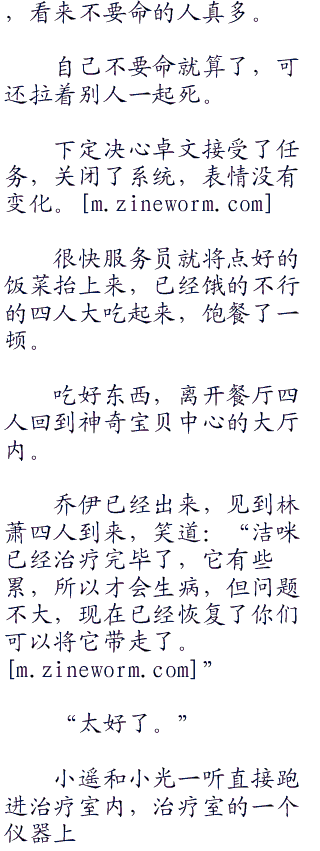 ，看来不要命的人真多。
自己不要命就算了，可
还拉着别人一起死。
下定决心卓文接受了任
务，关闭了系统，表情没有
变化。[m.zineworm.com]
很快服务员就将点好的
饭菜抬上来，已经饿的不行
的四人大吃起来，饱餐了一
顿。
吃好东西，离开餐厅四
人回到神奇宝贝中心的大厅
内。
乔伊已经出来，见到林
萧四人到来，笑道：“洁咪
已经治疗完毕了，它有些
累，所以才会生病，但问题
不大，现在已经恢复了你们
可以将它带走了。
[m.zineworm.com]”
“太好了。”
小遥和小光一听直接跑
进治疗室内，治疗室的一个
仪器上